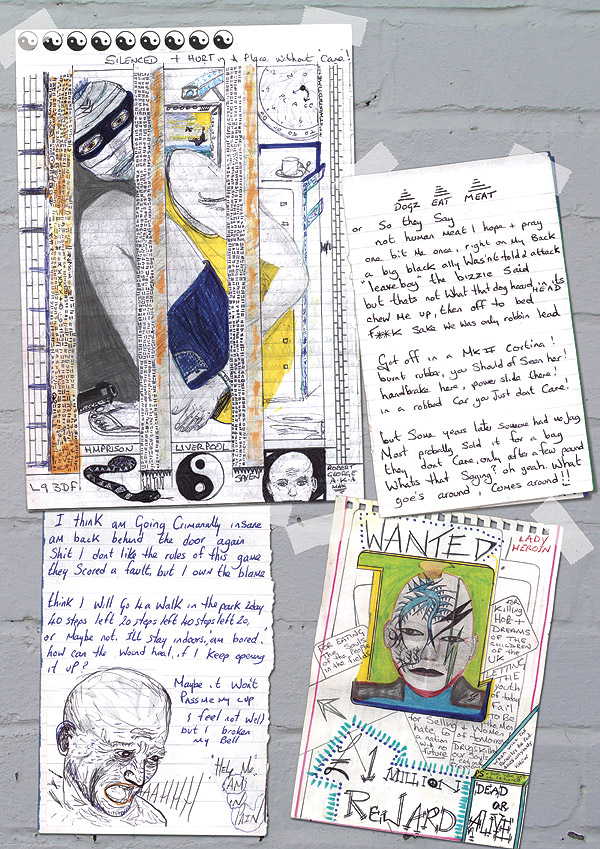 SILENCED + HURT in A Place without 'Care'!
HMPRISON
LIVERPOOL
L9 3DF
SEVEN
ROBERT
GEORGE
A.K.A
DOGZ EAT MEAT
or So they Say
not human Meat I hope + pray
one bit Me once, right on My Back
a big black ally Wasint told 2 attack
"leave boy" the bizzie Said
but thats not What that dog heard, in its HEAD
chew Me up, then off to bed
F**K Sake We Was only robbin lead
Got off in a MK II Cortina!
burnt rubber, you Should of Seen her!
handbrake here, power slide there!
in a robbed Car you Just dont Care!
but Some years later Someone had my Jag
Most probally Sold it for a bag
they dont Care, only after a few pound
Whats that Saying? oh yeah. What
goe's around, Comes around!!
I think am Going Crimanally insane
am back behind the door again
Shit I dont like the rules of this game
they Scored a fault, but I own the blame
think I Will Go 4 a Walk in the park 2day
40 steps left 20 steps left 40 steps left 20,
or Maybe not. I'll stay indoors, am bored.
how can the Wound heal, if I keep opening
it up?
Maybe it Won't
Pass me my cup
I feel not Well
but I broken
My Bell
"Help Me"
AHHHH
AM
IN
PAIN
WANTED
LADY
HEROIN
FOR EATING
the Souls
of the People
in the fields
FOR
Killing
HOPE +
DREAMS
OF THE
CHILDREN
OF THE
UK
LETTING
THE
YOUTH
of today
FAIL
TO BE
the Men
of tomorrow
for Selling
hate to
a nation
with no
future
DRUGS KILL
£1
MILLION
REWARD
DEAD
OR
ALIVE